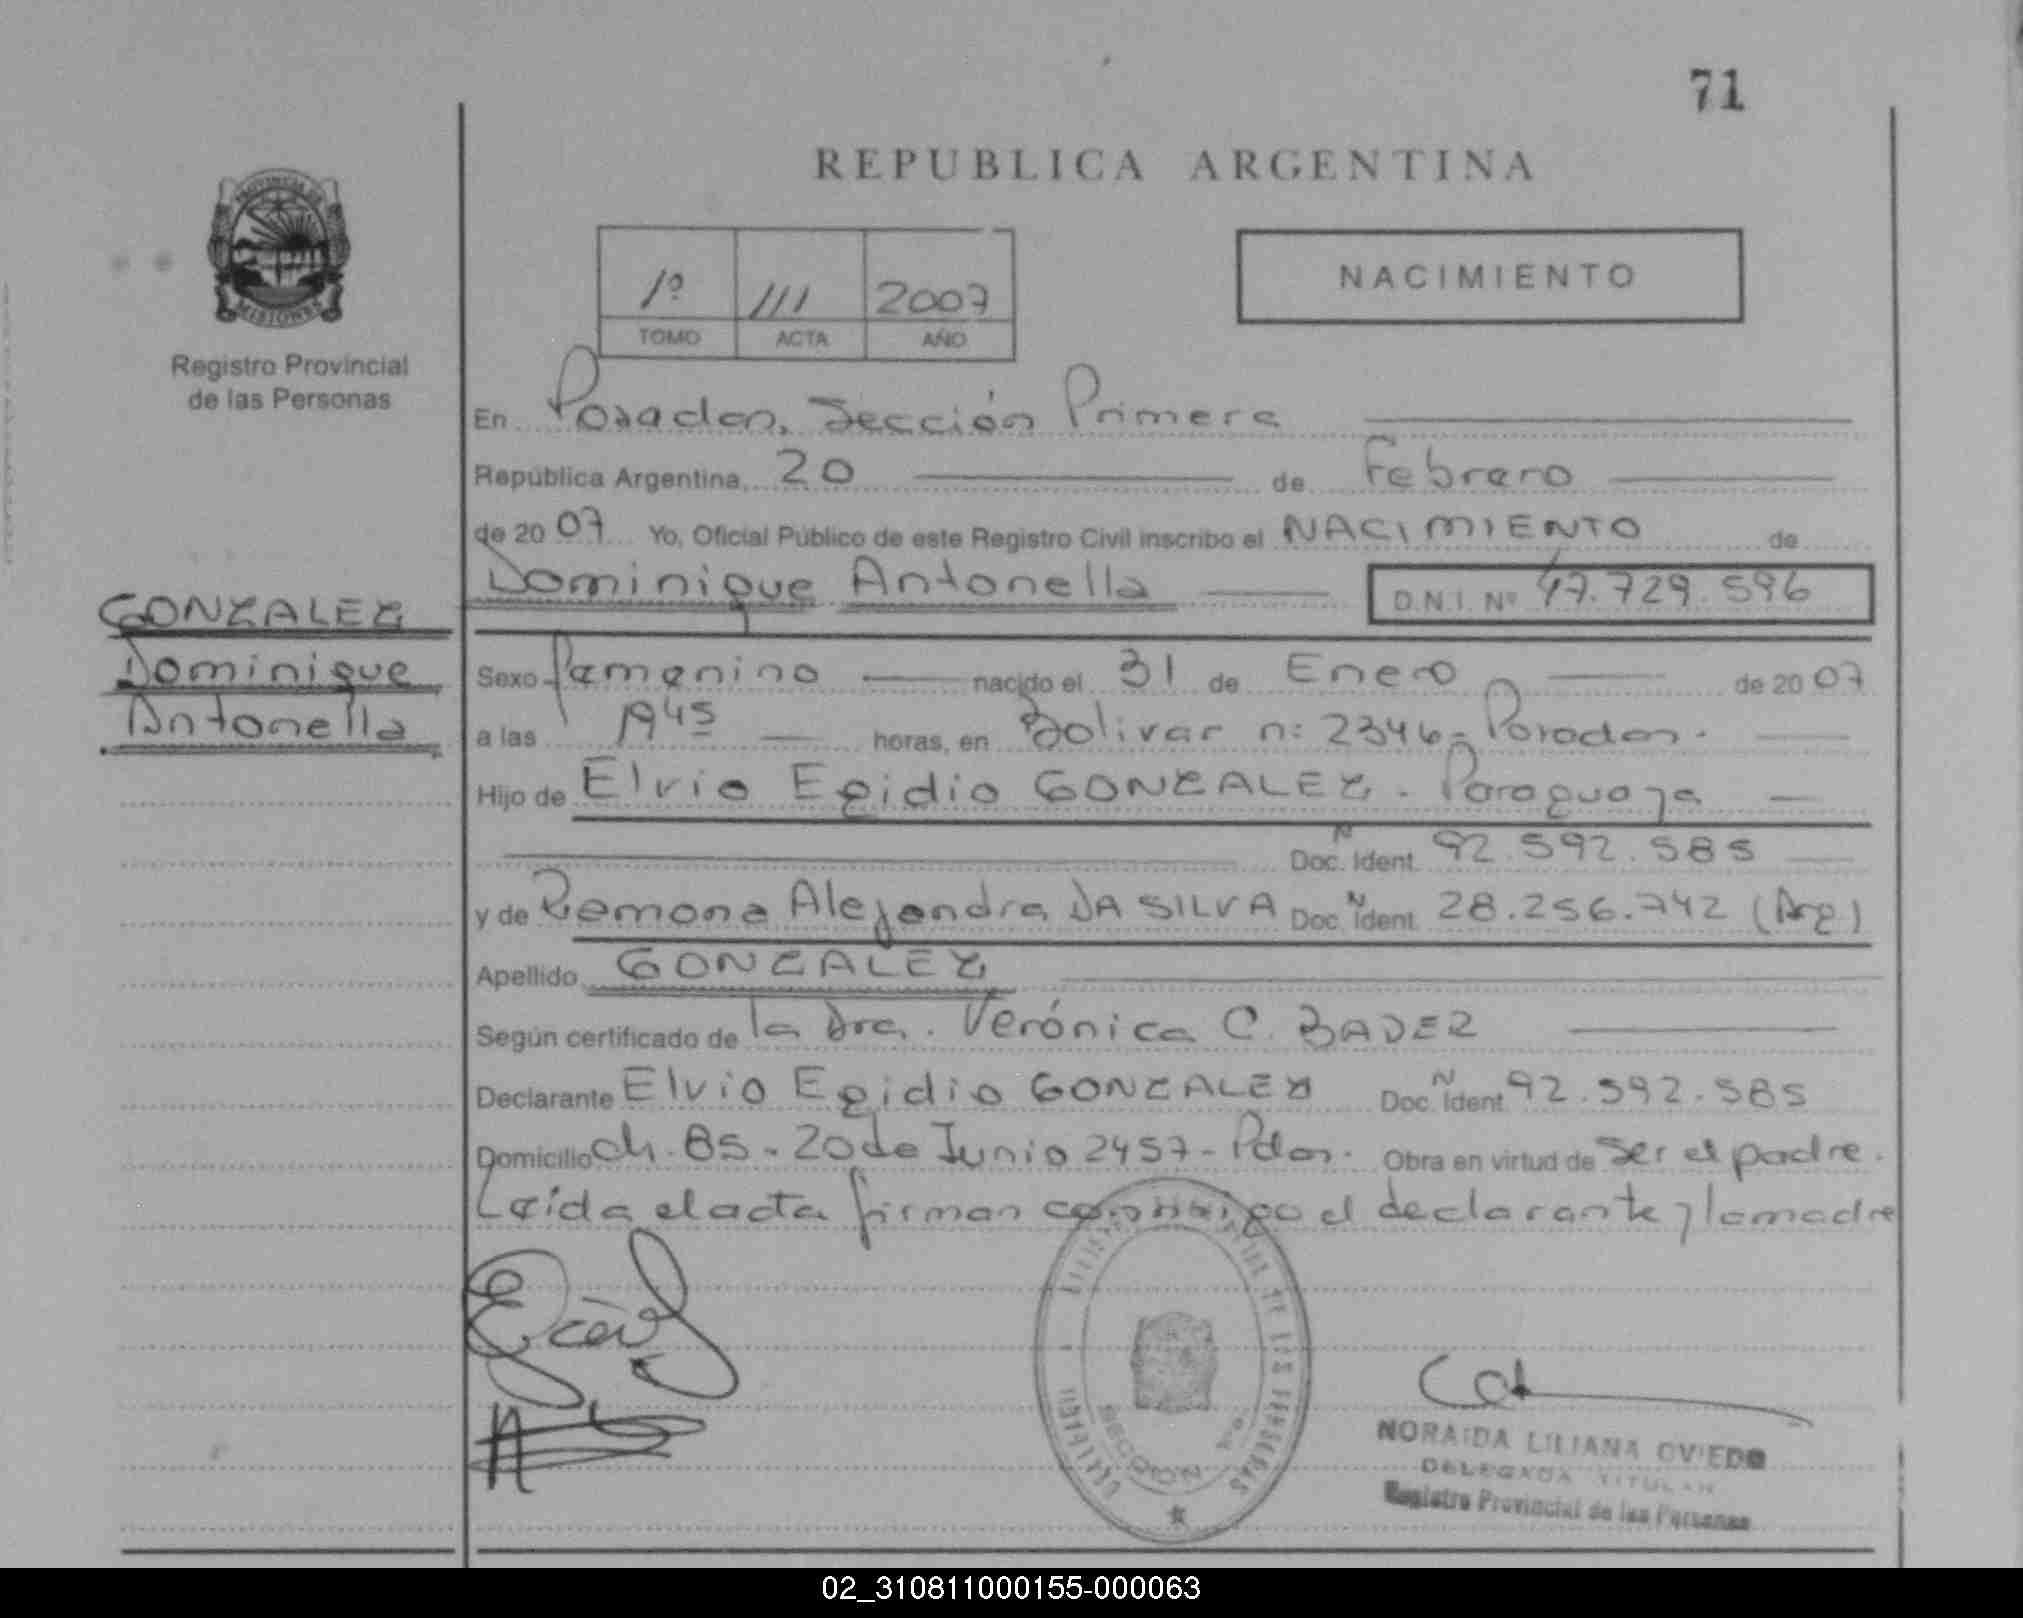 71
REPUBLICA ARGENTINA
PROVINCIA DE
MISIONES
Registro Provincial
de las Personas
1º 111 2007
TOMO ACTA AÑO
NACIMIENTO
En Posadas, Sección Primera
República Argentina, 20 de Febrero
de 2007 Yo, Oficial Público de este Registro Civil inscribo el NACIMIENTO de
Dominique Antonella D.N.I. Nº 47.729.596
GONZALEZ
Dominique
Antonella
Sexo femenino nacido el 31 de Enero de 2007
a las 19 45 horas, en Bolivar n: 2346- Posadas.
Hijo de Elvio Egidio GONZALEZ. Paraguaya
N Doc. Ident. 92.592.585
y de Ramona Alejandra DA SILVA Doc. N Ident. 28.256.742 (Arg)
Apellido GONZALEZ
Según certificado de la Dra. Verónica C. BADER
Declarante Elvio Egidio GONZALEZ Doc. N Ident. 92.592.585
Domicilio ch. 85 - 20 de Junio 2457 - Pdas. Obra en virtud de ser el padre.
Leída el acta firman conmigo el declarante y la madre
SECCION
NORAIDA LILIANA OVIEDO
DELEGADA TITULAR
Registro Provincial de las Personas
02_310811000155-000063